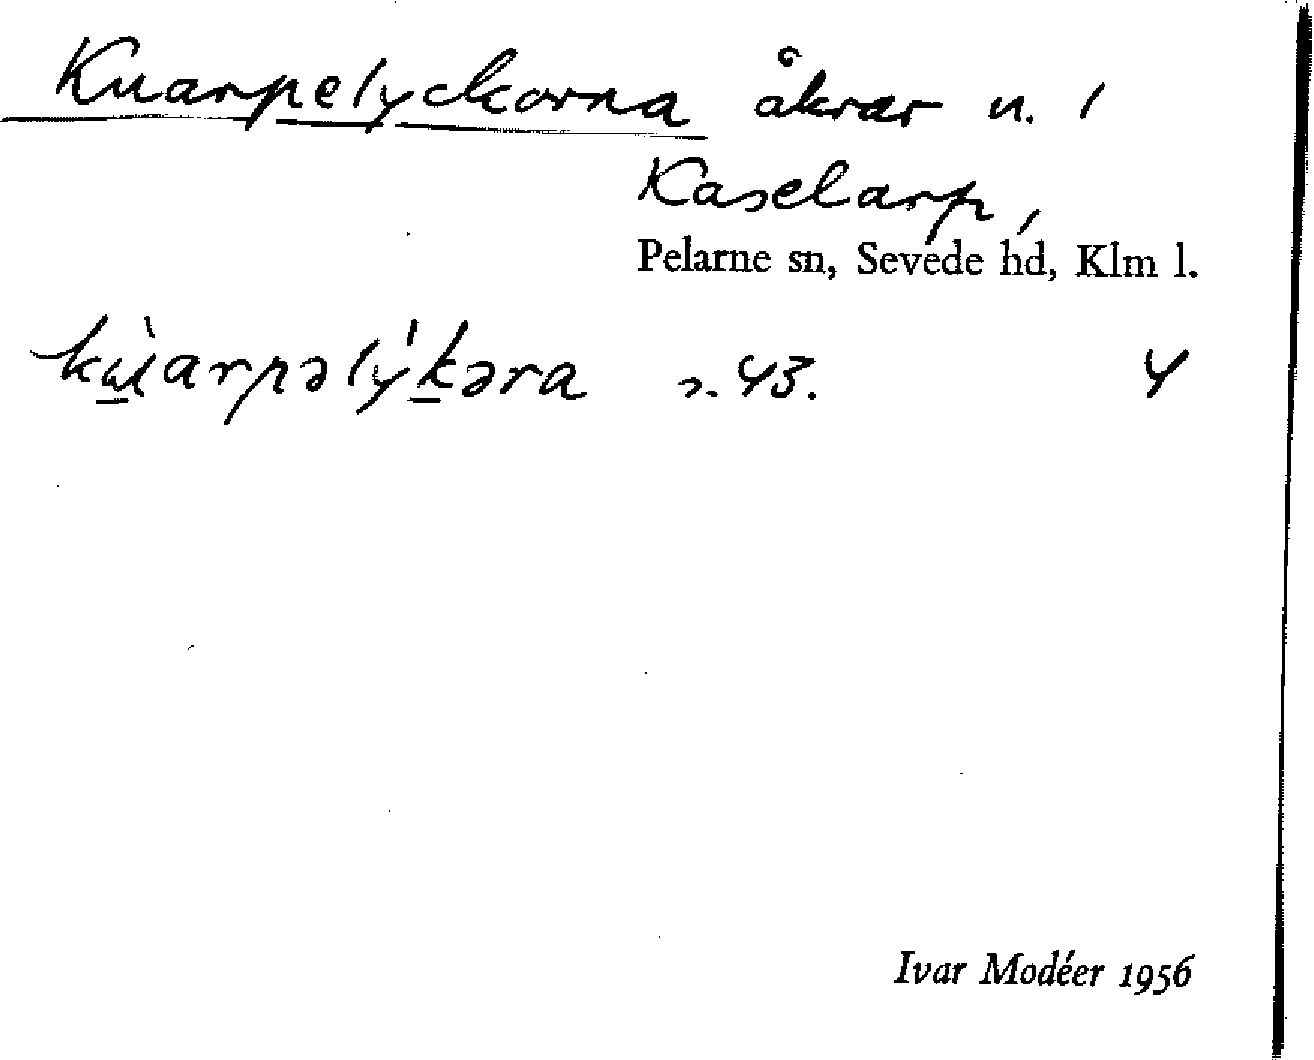 Kuarpelyckorna åkrar n. 1
Kaselarp,
Pelarne sn, Sevede hd, Klm l.
s. 43. 4
Ivar Modéer 1956